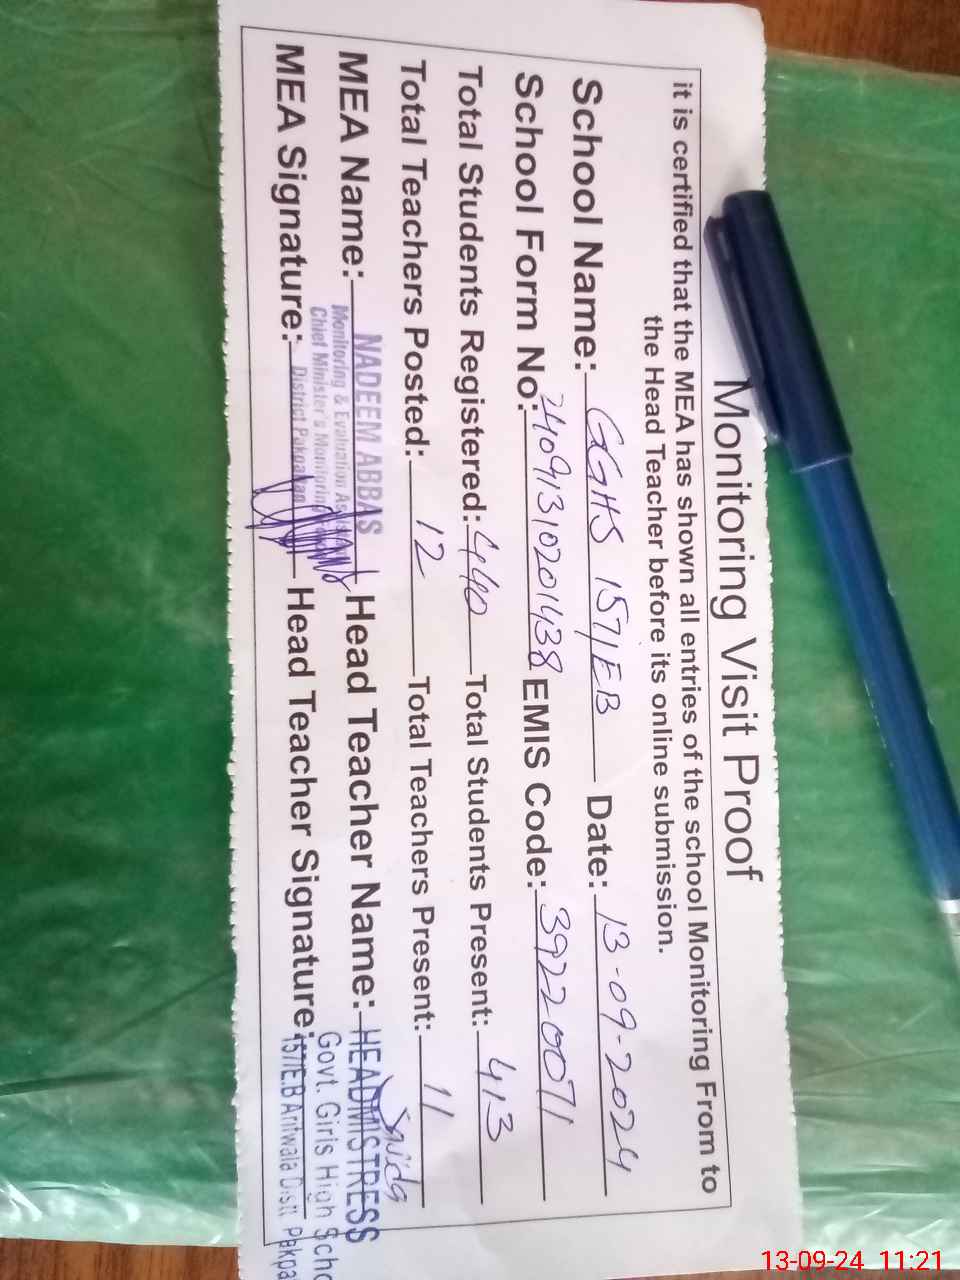 Monitoring Visit Proof
it is certified that the MEA has shown all entries of the school Monitoring From to
the Head Teacher before its online submission.
School Name: GGHS 157/EB Date: 13-09-2024
School Form No: 24091310201438 EMIS Code: 39220071
Total Students Registered: 440 Total Students Present: 413
Total Teachers Posted: 12 Total Teachers Present: 11
MEA Name: NADEEM ABBAS Head Teacher Name: HEADMISTRESS
Monitoring & Evaluation
Chief Minister's Monitoring
Govt. Girls High
MEA Signature: District Pakpattan Head Teacher Signature: 157/E.B Aritwala Distt Pakpa
13-09-24 11:21